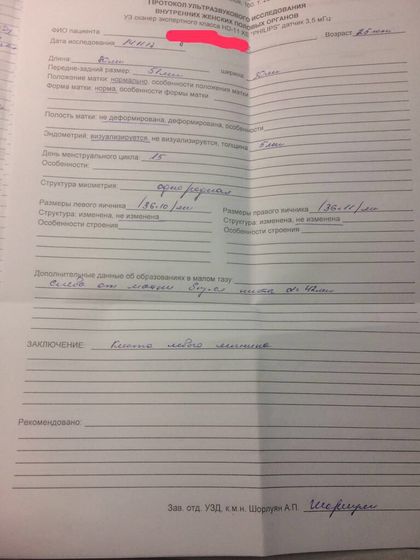 ПРОТОКОЛ УЛЬТРАЗВУКОВОГО ИССЛЕДОВАНИЯ
ВНУТРЕННИХ ЖЕНСКИХ ПОЛОВЫХ ОРГАНОВ
УЗ сканер экспертного класса HD-11 XE "PHILIPS" датчик 3,5 мГц
ФИО пациента Возраст
Дата исследования
Длина:
Передне-задний размер: 51мм ширина:
Положение матки: нормально, особенности положения матки
Форма матки: норма, особенности формы матки
Полость матки: не деформирована, деформирована, особенности
Эндометрий: визуализируется, не визуализируется, толщина 5мм
День менструального цикла 15
Особенности:
Структура миометрия: однородная
Размеры левого яичника Размеры правого яичника
Структура: изменена, не изменена Структура: изменена, не изменена
Особенности строения Особенности строения
Дополнительные данные об образованиях в малом тазу:
слева от матки киста 42мм
ЗАКЛЮЧЕНИЕ: Киста левого яичника
Рекомендовано:
Зав. отд. УЗД, к.м.н. Шорлуян А.П.